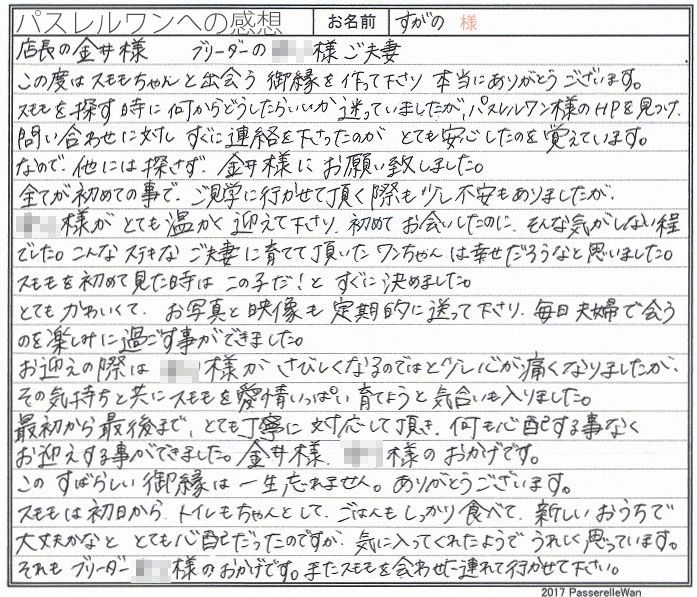 パスレルワンへの感想 お名前 すがの 様
店長の金井様 ブリーダーの 様ご夫妻
この度はスモモちゃんと出会う御縁を作って下さり本当にありがとうございます。
スモモを探す時に何からどうしたらいいか迷っていましたが、パスレルワン様のHPを見つけ、
問い合わせに対しすぐに連絡を下さったのがとても安心したのを覚えています。
なので、他には探さず、金井様にお願い致しました。
全てが初めての事で、ご見学に行かせて頂く際も少し不安もありましたが、
様がとても温かく迎えて下さり、初めてお会いしたのに、そんな気がしない程
でした。こんなステキなご夫妻に育てて頂いたワンちゃんは幸せだろうなと思いました。
スモモを初めて見た時はこの子だ!とすぐに決めました。
とてもかわいくて、お写真と映像も定期的に送って下さり、毎日夫婦で会う
のを楽しみに過ごす事ができました。
お迎えの際は 様がさびしくなるのではと少し心が痛くなりましたが、
その気持ちと共にスモモを愛情いっぱい育てようと気合いも入りました。
最初から最後まで、とても丁寧に対応して頂き、何も心配する事なく
お迎えする事ができました。金井様、 様のおかげです。
このすばらしい御縁は一生忘れません。ありがとうございます。
スモモは初日から、トイレもちゃんとして、ごはんもしっかり食べて、新しいおうちで
大丈夫かなととても心配だったのですが、気に入ってくれたようでうれしく思っています。
それもブリーダー 様のおかげです。またスモモを会わせに連れて行かせて下さい。
2017 PasserelleWan